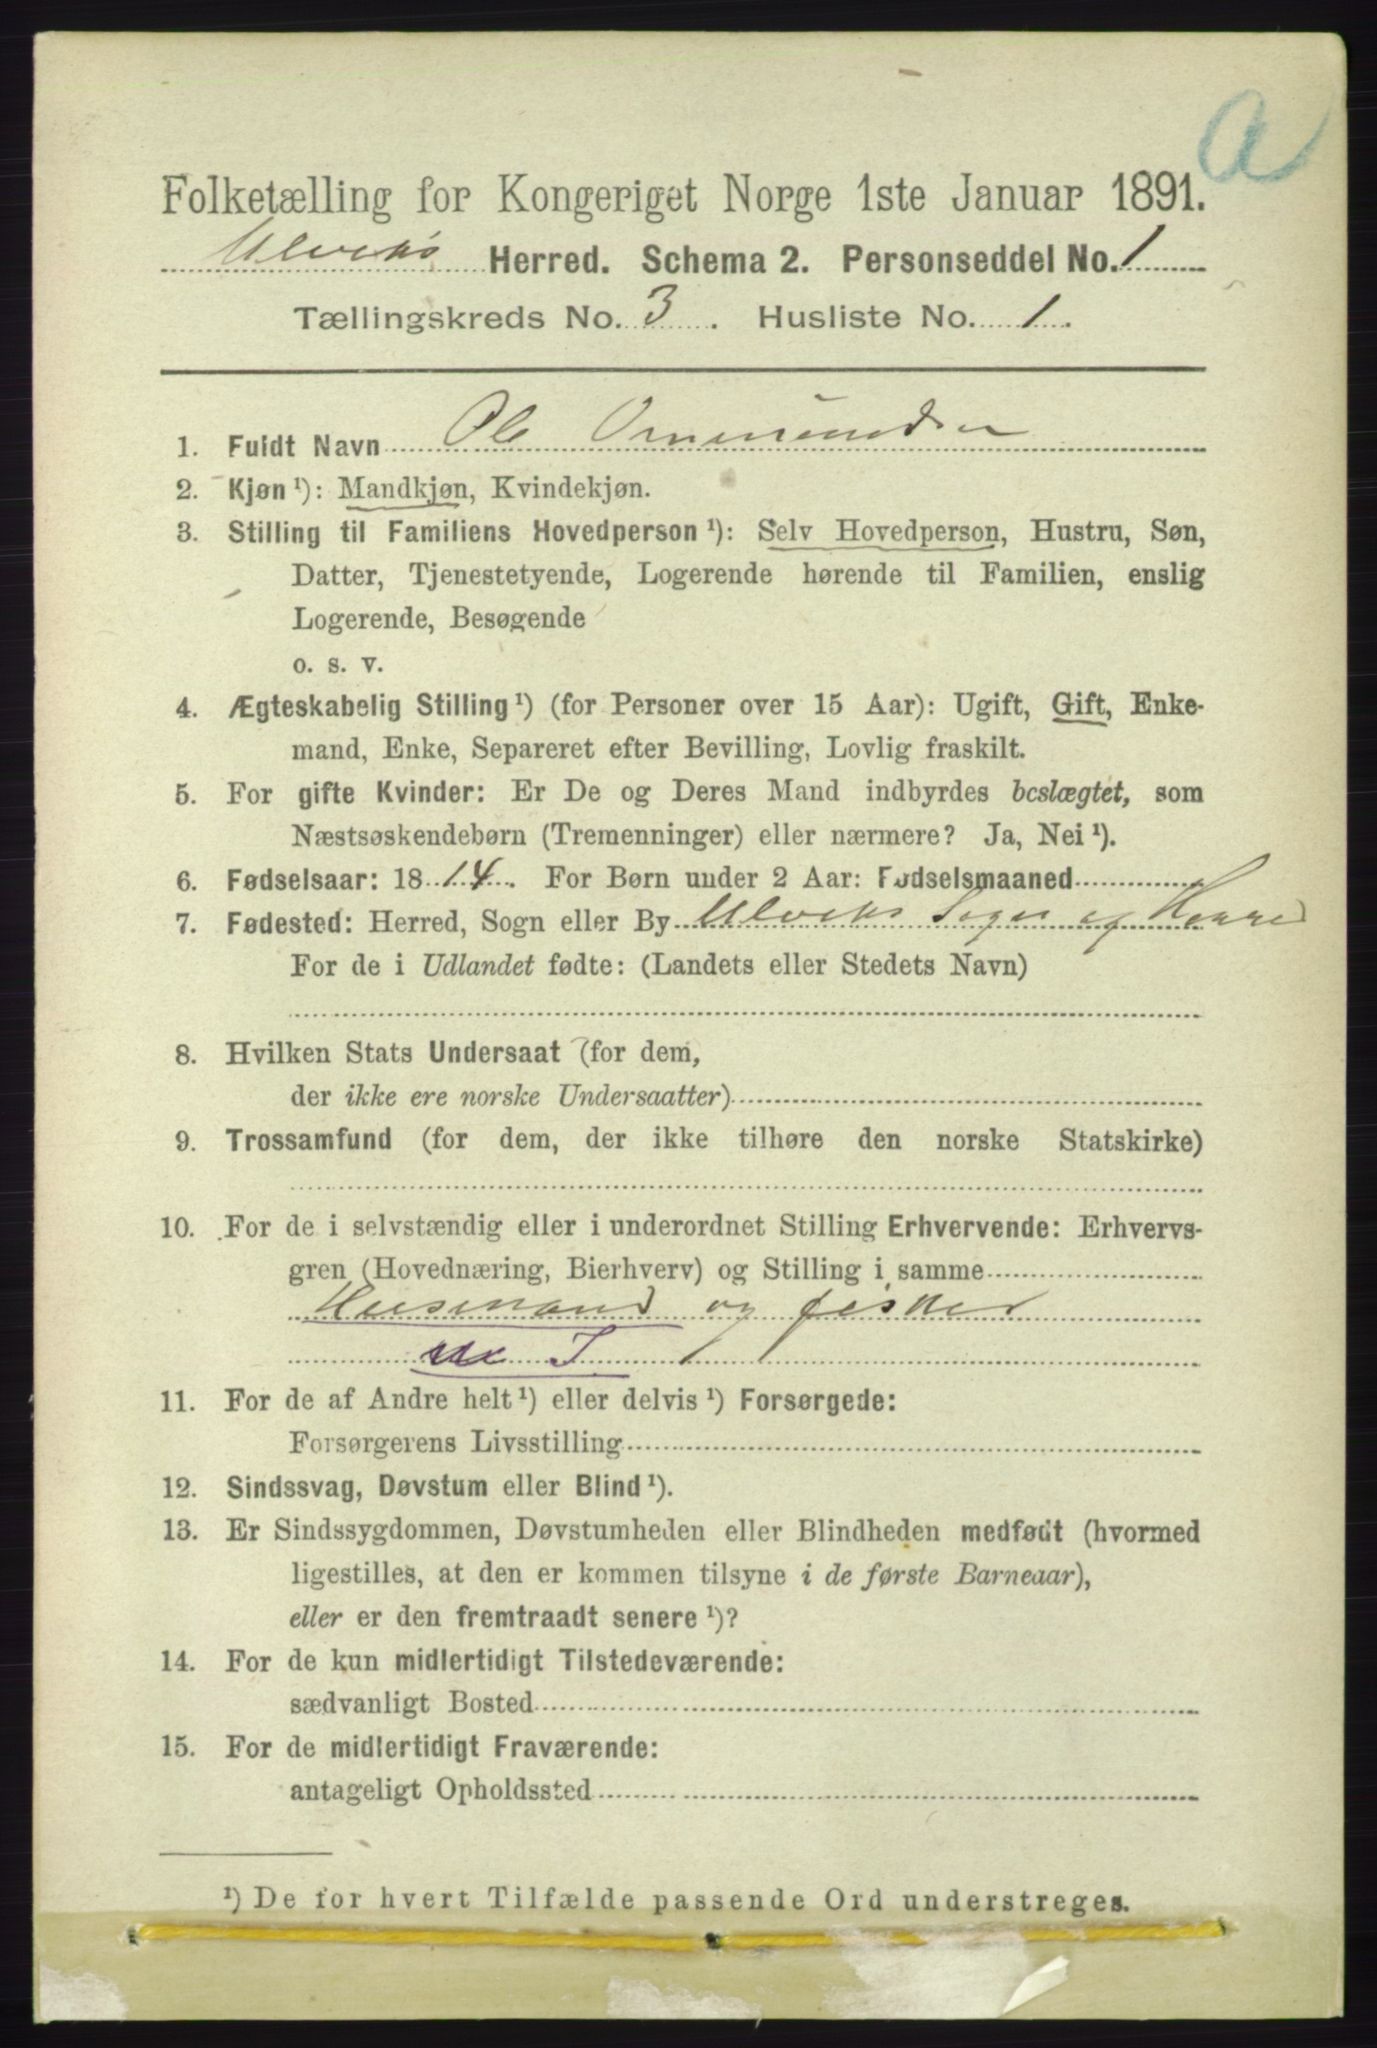 a
Folketælling for Kongeriget Norge 1ste Januar 1891.
Ulviks Herred. Schema 2. Personseddel No. 1
Tællingskreds No. 3. Husliste No. 1.
1. Fuldt Navn Ole Ommundsen
2. Kjøn ¹): Mandkjøn, Kvindekjøn.
3. Stilling til Familiens Hovedperson ¹): Selv Hovedperson, Hustru, Søn,
Datter, Tjenestetyende, Logerende hørende til Familien, enslig
Logerende, Besøgende
o. s. v.
4. Ægteskabelig Stilling ¹) (for Personer over 15 Aar): Ugift, Gift, Enke-
mand, Enke, Separeret efter Bevilling, Lovlig fraskilt.
5. For gifte Kvinder: Er De og Deres Mand indbyrdes beslægtet, som
Næstsøskendebørn (Tremenninger) eller nærmere? Ja, Nei ¹).
6. Fødselsaar: 1814. For Børn under 2 Aar: Fødselsmaaned
7. Fødested: Herred, Sogn eller By Ulviks Sogn og Herred
For de i Udlandet fødte: (Landets eller Stedets Navn)
8. Hvilken Stats Undersaat (for dem,
der ikke ere norske Undersaatter)
9. Trossamfund (for dem, der ikke tilhøre den norske Statskirke)
10. For de i selvstændig eller i underordnet Stilling Erhvervende: Erhvervs-
gren (Hovednæring, Bierhverv) og Stilling i samme
Husmand og fisker
J
11. For de af Andre helt ¹) eller delvis ¹) Forsørgede:
Forsørgerens Livsstilling
12. Sindssvag, Døvstum eller Blind ¹).
13. Er Sindssygdommen, Døvstumheden eller Blindheden medfødt (hvormed
ligestilles, at den er kommen tilsyne i de første Barneaar),
eller er den fremtraadt senere ¹)?
14. For de kun midlertidigt Tilstedeværende:
sædvanligt Bosted
15. For de midlertidigt Fraværende:
antageligt Opholdssted
¹) De for hvert Tilfælde passende Ord understreges.